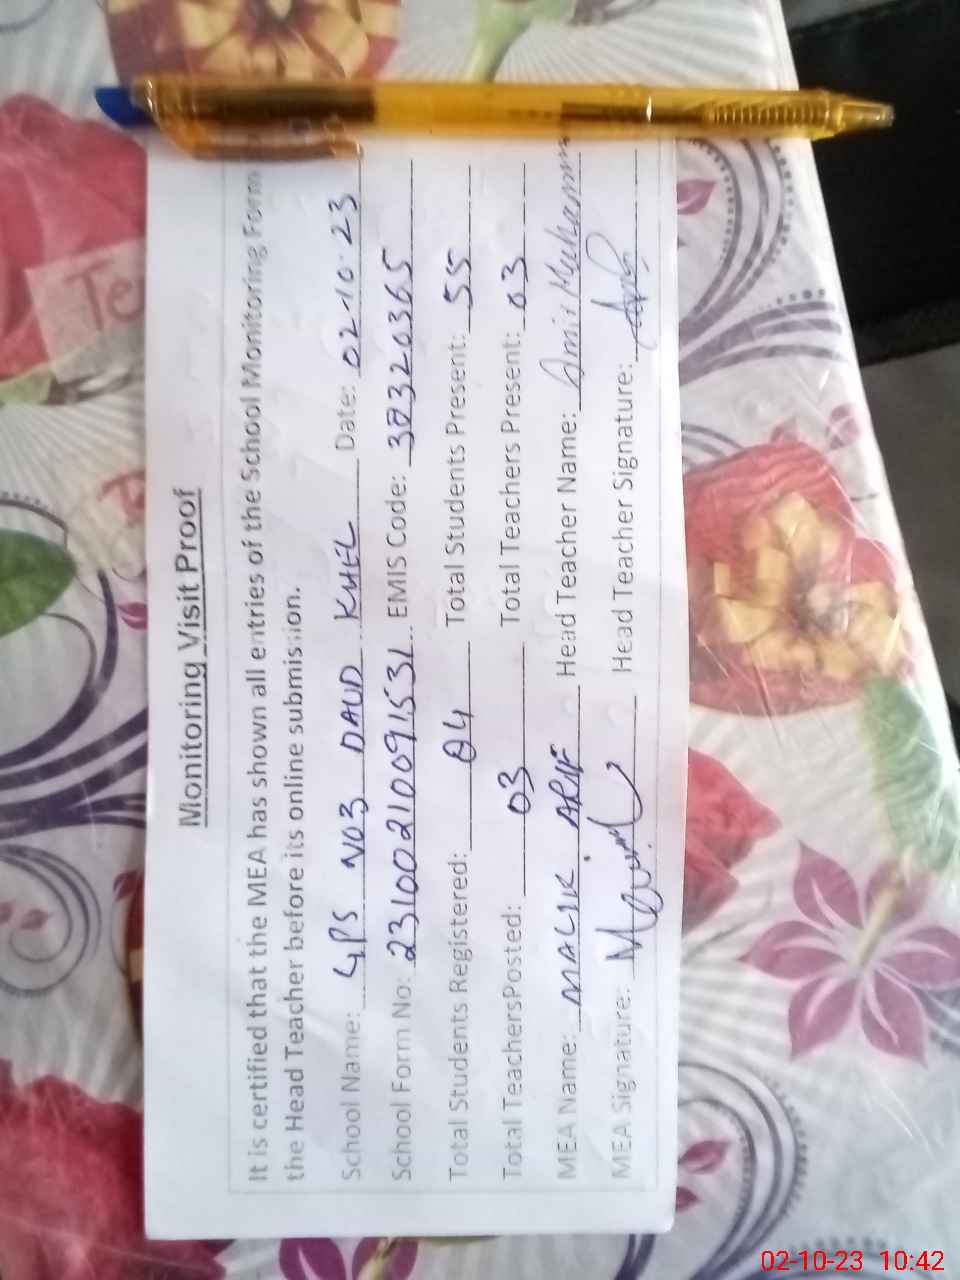 Monitoring Visit Proof
It is certified that the MEA has shown all entries of the School Monitoring Form
the Head Teacher before its online submission.
School Name: GPS NO3 DAUD KHEL Date: 02-10-23
School Form No: 23100210091531 EMIS Code: 38320365
Total Students Registered: 84 Total Students Present: 55
Total TeachersPosted: 03 Total Teachers Present: 03
MEA Name: MALIK ARIF Head Teacher Name: Amir Muhamm
MEA Signature: Head Teacher Signature:
Te
02-10-23 10:42